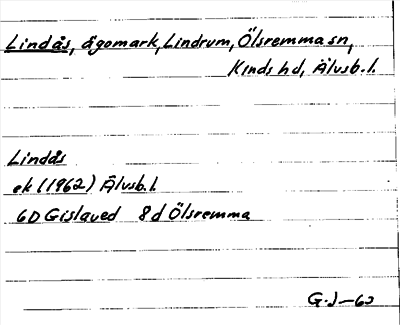 Lindås, ägomark, Lindrum, Ölsremma sn,
Kinds hd, Älvsb. l.
Lindås
ek (1962) Älvsb. l.
6D Gislaved 8d Ölsremma
G.J-63